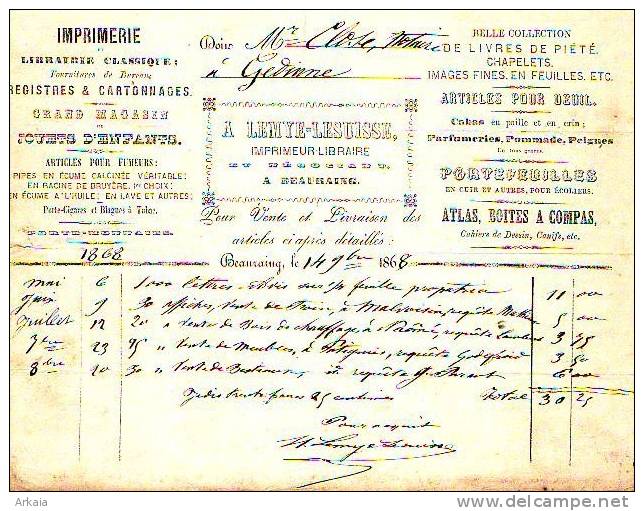 IMPRIMERIE
ET
LIBRAIRIE CLASSIQUE;
Fournitures de Bureau;
REGISTRES & CARTONNAGES.
GRAND MAGASIN
DE
JOUETS D'ENFANTS.
ARTICLES POUR FUMEURS:
PIPES EN ÉCUME CALCINÉE VÉRITABLE;
EN RACINE DE BRUYÈRE, 1er CHOIX;
EN ÉCUME A L'HUILE; EN LAVE ET AUTRES;
Porte-Cigares et Blagues à Tabac.
PORTE-MONNAIES.
Doit Mr Notaire
à Gedinne
A LEMYE-LESUISSE,
IMPRIMEUR-LIBRAIRE
ET NÉGOCIANT,
A BEAURAING.
Pour Vente et Livraison des
articles ci après détaillés:
BELLE COLLECTION
DE LIVRES DE PIÉTÉ.
CHAPELETS.
IMAGES FINES, EN FEUILLES, ETC.
ARTICLES POUR DEUIL.
Cabas en paille et en crin;
Parfumeries, Pommade, Peignes
En tous genres.
PORTEFEUILLES
EN CUIR ET AUTRES, POUR ÉCOLIERS.
ATLAS, BOITES A COMPAS,
Cahiers de Dessin, Canifs, etc.
1868
Beauraing, le 14 9bre 1868
mai 6 1000 lettres feuille 11 00
Juin 9 30 affiches, vente de à Malvoisin, requête 5 00
Juillet 12 20 " vente de bois de chauffage à requête 3 75
7bre 23 25 " vente de Meubles, à requête 3 50
8bre 20 30 " vente de requête 6 00
trente francs 25 centimes Total 30 25
Pour acquit
Lemye Lesuisse
Arkaia
delcampe.net